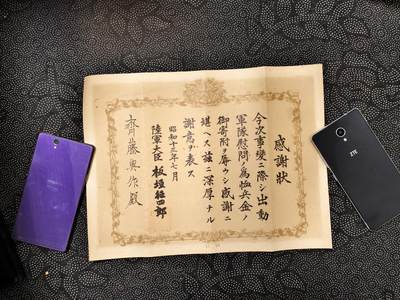 感謝狀
今次事變ニ際シ出動
軍隊慰問ノ為恤兵金ノ
御寄附ヲ辱ウシ感謝ニ
堪ヘス茲ニ深厚ナル
謝意ヲ表ス
昭和十三年七月
陸軍大臣 板垣征四郎
齊藤與作殿
ZTE